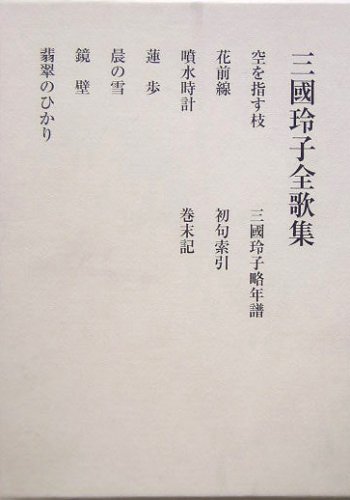 三國玲子全歌集
空を指す枝
三國玲子略年譜
花前線
初句索引
噴水時計
巻末記
蓮歩
晨の雪
鏡壁
翡翠のひかり